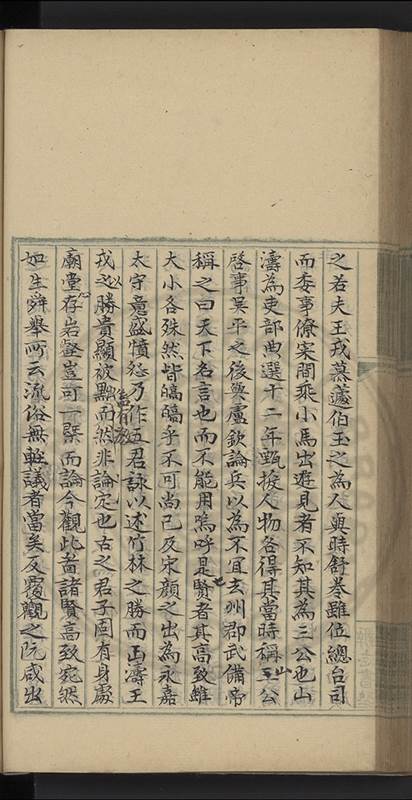 之若夫王戎慕蘧伯玉之為人與時舒卷雖位總台司
而委事僚寀間乘小馬出遊見者不知其為三公也山
濤為吏部典選十二年甄拔人物各得其當時稱山公
啓事吳平之後與盧欽論兵以為不宜去州郡武備帝
稱之曰天下名言也而不能用嗚呼是七賢者其高致雖
大小各殊然皆皜皜乎不可尚已及宋顏之出為永嘉
太守意盛憤怨乃作五君詠以述竹林之勝而山濤王
戎以勝貴顯被黜而然非論定也古之君子固有身處
廟堂心存岩壑豈可一槩而論今觀此啚諸賢高致宛然
如生舜舉所云流俗無輕議者當矣反覆觀之阮咸出